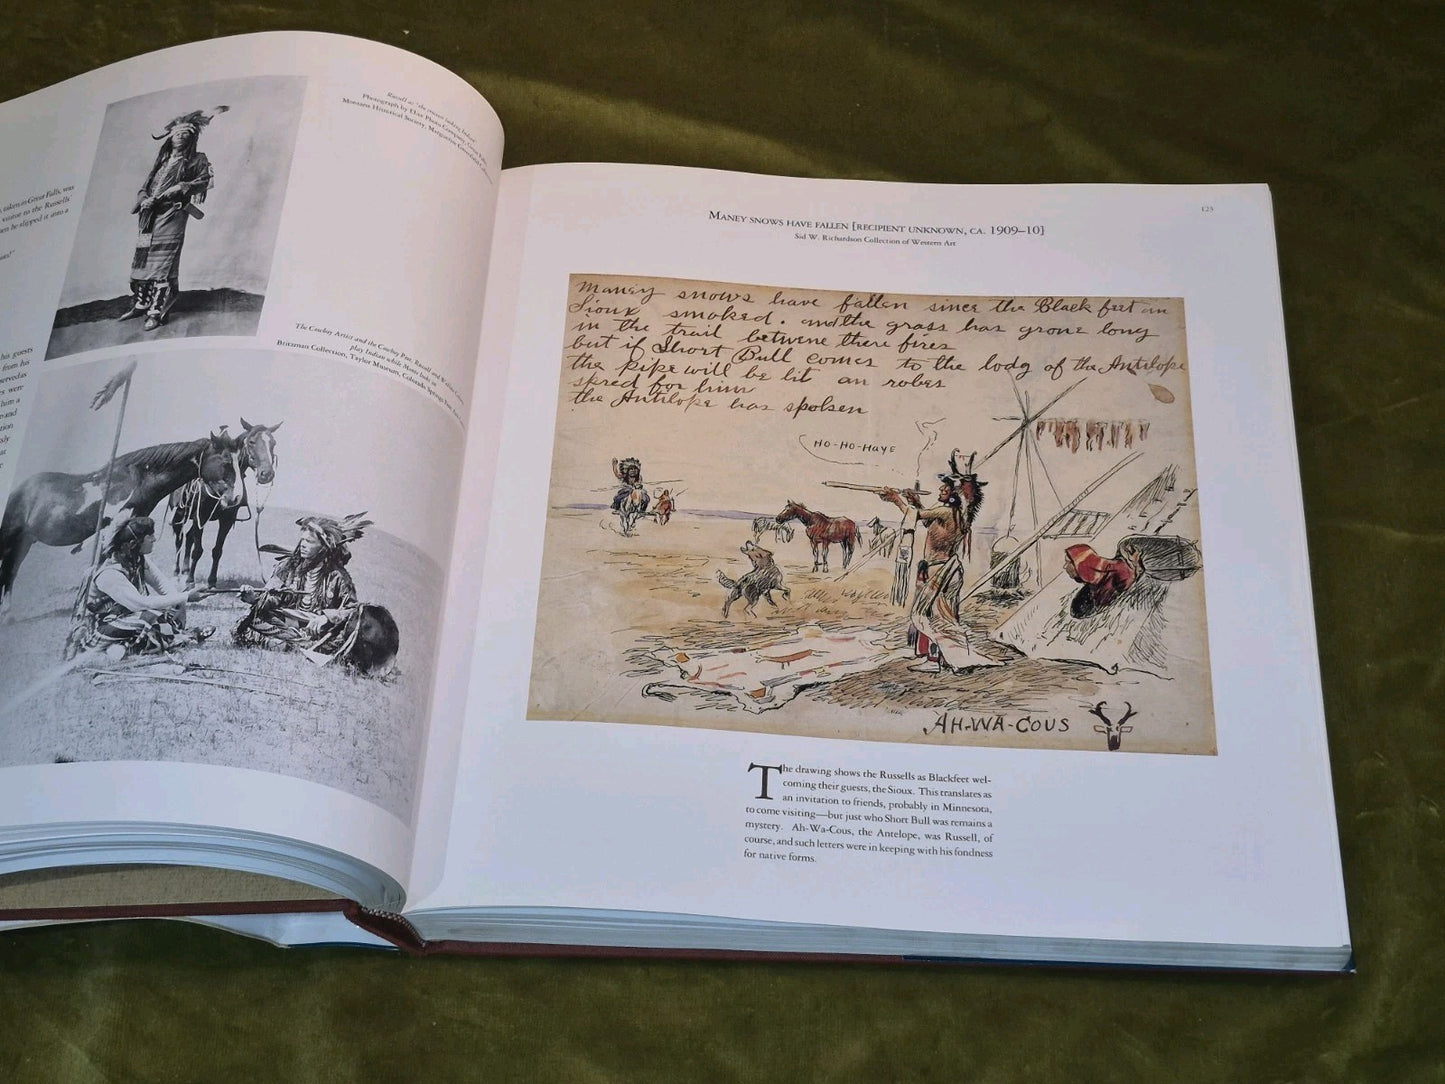 taken in Great Falls, was
visitor to the Russells'
he slipped it into a
his guests
from his
served as
were
him a
and
tion
sly
at
e
Russell as "the truest looking Indian"
Photograph by Elite Photo Company, Great Falls,
Montana Historical Society, Margaritte Greenfield
The Cowboy Artist and the Cowboy Pun, Russell and
play Indian while Monte looks on
Britzman Collection, Taylor Museum, Colorado Springs Fine Arts
123
MANEY SNOWS HAVE FALLEN [RECIPIENT UNKNOWN, CA. 1909–10]
Sid W. Richardson Collection of Western Art
Maney snows have fallen since the Black feet an
Sioux smoked. and the grass has grone long
in the trail betwine there fires
but if Short Bull comes to the lodg of the Antilope
the pipe will be lit an robes
spred for him
the Antilope has spoken
HO-HO-HAYE
AH-WA-COUS
The drawing shows the Russells as Blackfeet wel-
coming their guests, the Sioux. This translates as
an invitation to friends, probably in Minnesota,
to come visiting—but just who Short Bull was remains a
mystery. Ah-Wa-Cous, the Antelope, was Russell, of
course, and such letters were in keeping with his fondness
for native forms.